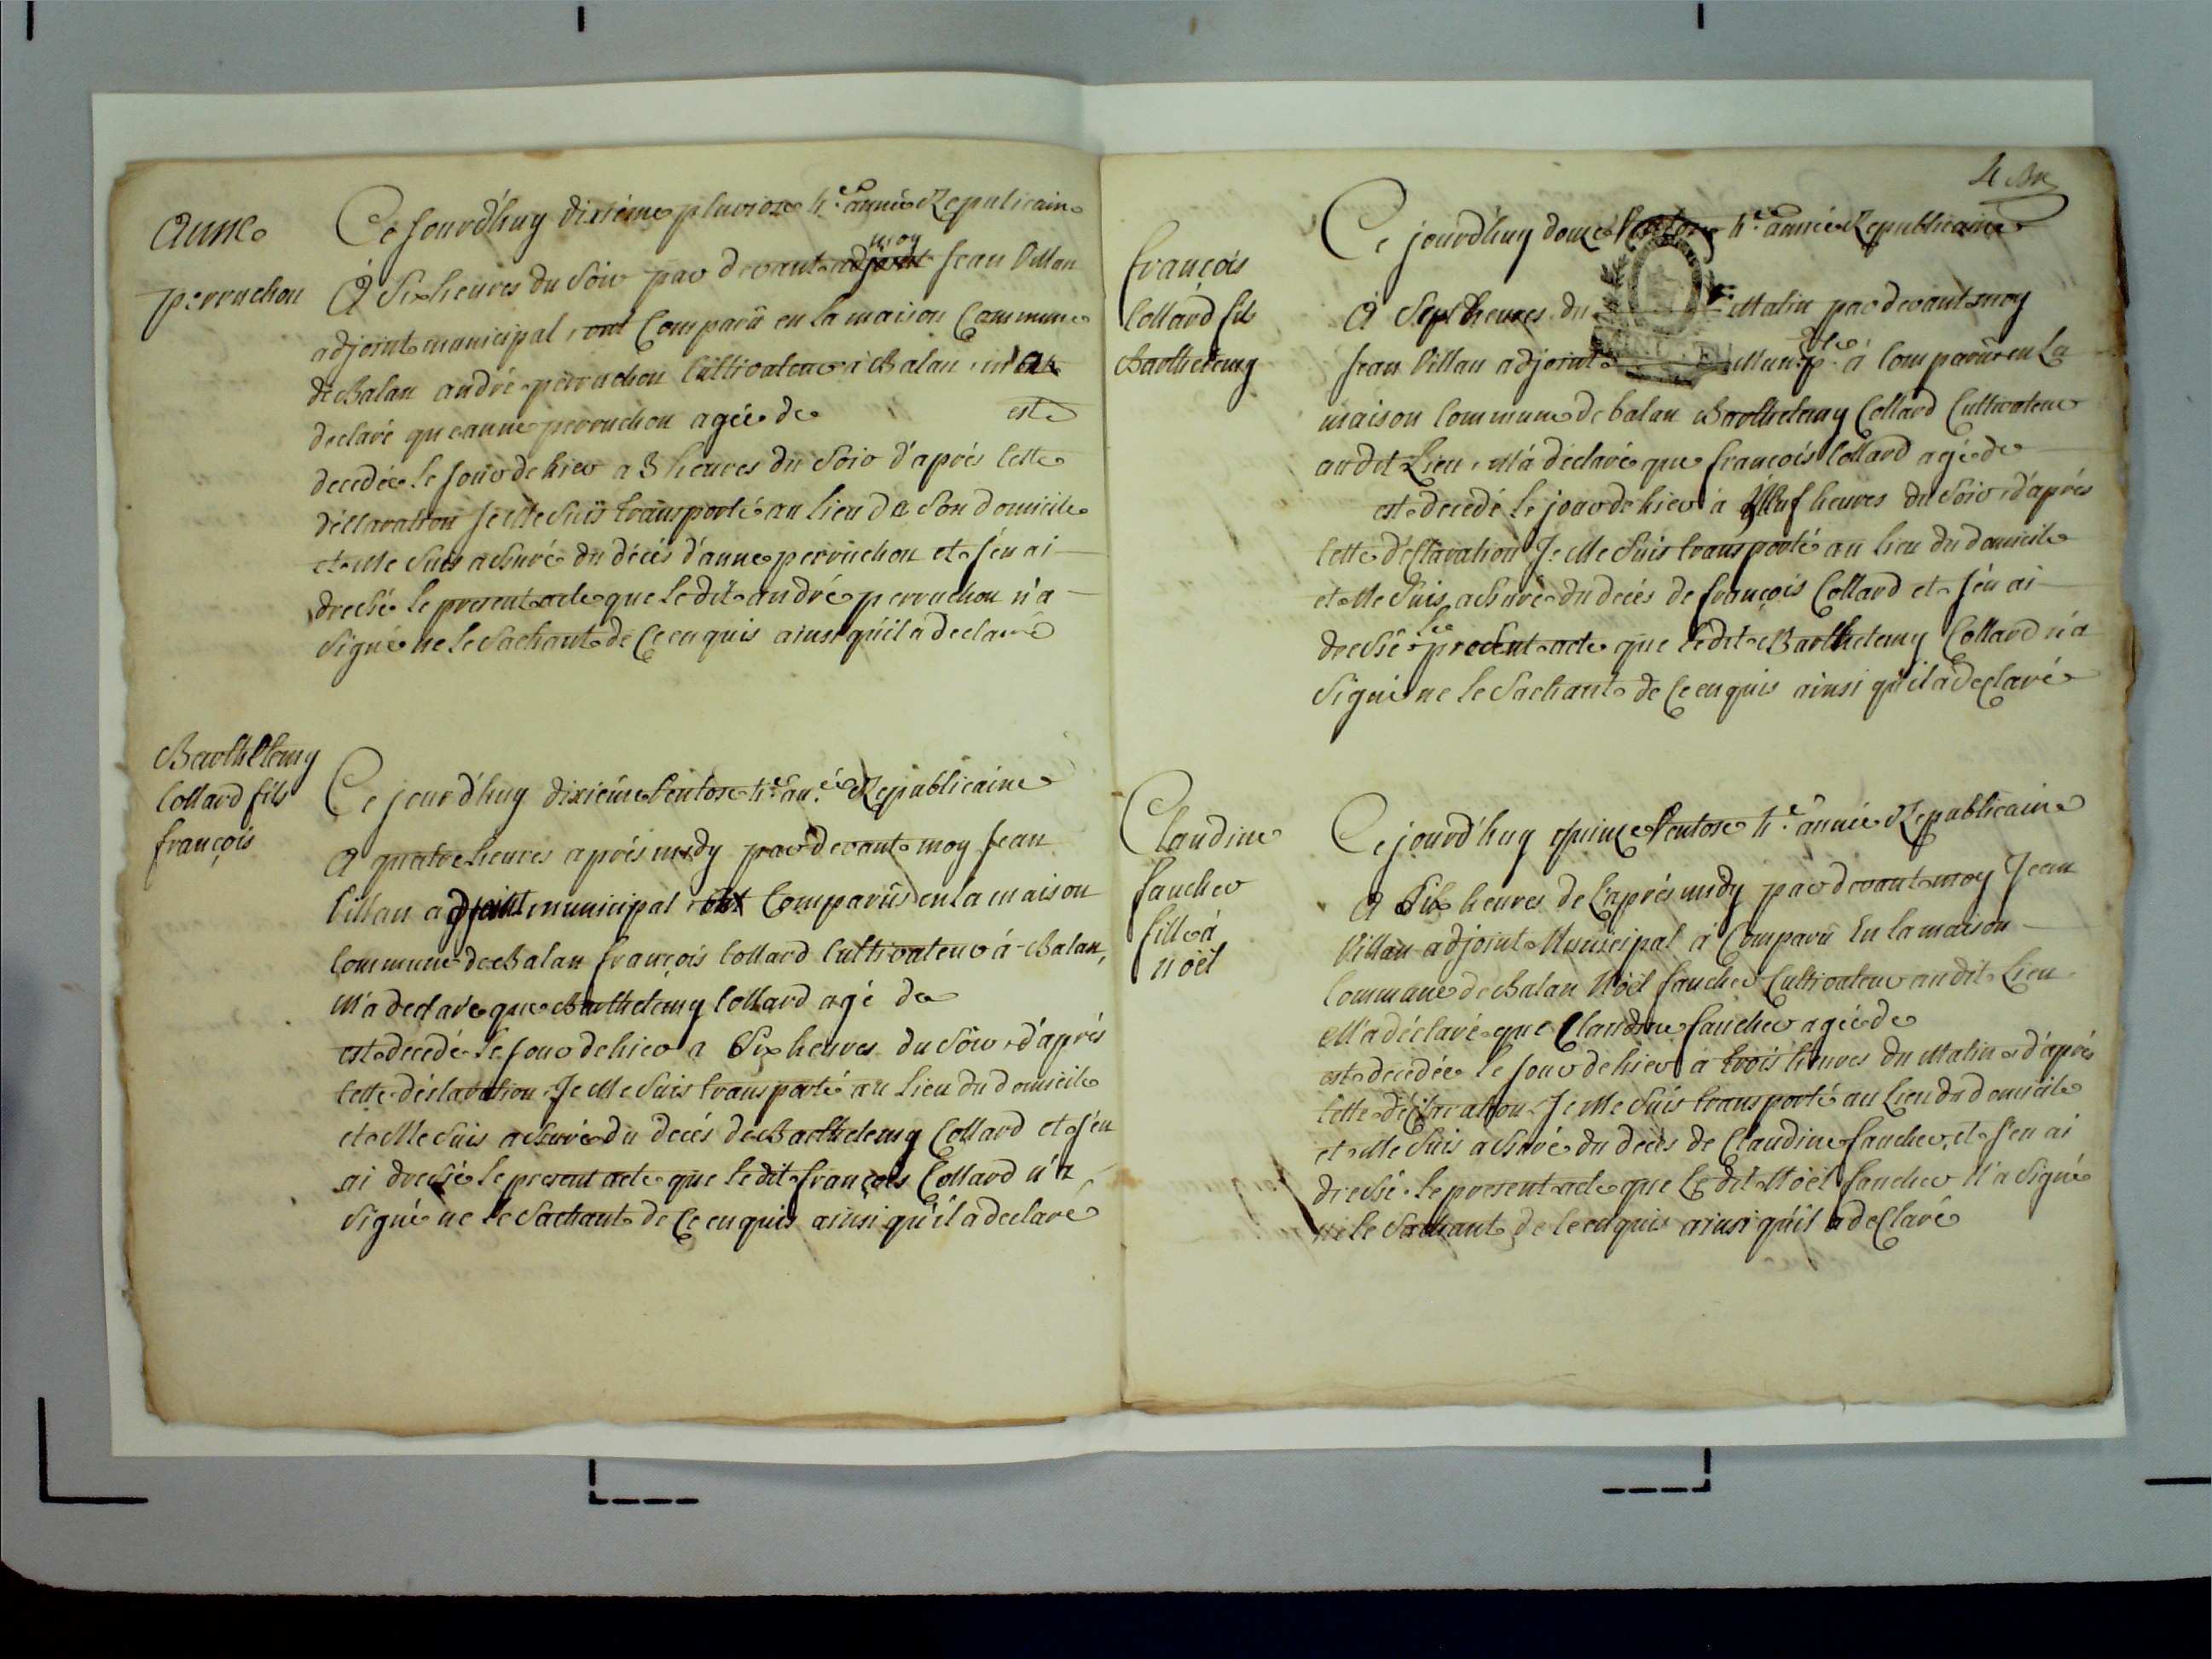 anne
perruchon
Ce Jourd'huy dixième pluviose 4e. année Republicaine
A Six heures du Soir par devant adjoint moy Jean Villan
adjoint municipal, ont Comparû en la maison Commune
de Balan andré perruchon Cultivateur à Balan, m'a
declaré que anne perruchon agée de est
decedée le jour de hier a 3 heures du Soir d'après Cette
déclaration Je Me Suis transporté au lieu de Son domicile
et Me Suis assuré du décès d'anne perruchon et J'en ai
dressé le present acte que le dit andré perruchon n'a
Signé ne le Sachant de Ce enquis ainsi qu'il a declaré
Barthelemy
Collard fils
françois
Ce jourd'huy dixième Ventose 4e. an.ée Republicaine
A quatre heures après midy par devant moy Jean
Villan adjoint municipal ont Comparûs en la maison
Commune de Balan françois Collard Cultivateur à Balan,
M'a declaré que Barthelemy Collard agé de
est decedé le Jour de hier a Six heures du Soir, d'après
Cette déclaration Je Me Suis transporté au Lieu du domicile
et Me Suis assuré du decés de Barthelemy Collard et J'en
ai dressé le present acte que le dit françois Collard n'a
Signé ne le Sachant de Ce enquis ainsi qu'il a declaré
4
françois
Collard fils
Barthelemy
Ce jourd'huy douze Ventose 4e. année Republicaine
A Sept heures du Matin par devant moy
Jean Villan adjoint Munip.le à Comparû en La
maison Commune de balan Barthelemy Collard Cultivateur
au dit Lieu, M'à déclaré que françois Collard agé de
est decedé le jour de hier à Neuf heures du Soir, d'après
Cette déclaration Je Me Suis transporté au lieu du domicile
et Me Suis assuré du decés de françois Collard et J'en ai
dressé le present acte que le dit Barthelemy Collard n'a
Signé ne le Sachant de Ce enquis ainsi qu'il a declaré
Claudine
faucher
fille à
noël
Ce jourd'huy quinze Ventose 4e. année Republicaine
A Six heures de l'après midy par devant moy Jean
Villan adjoint Municipal à Comparû En la maison
Commune de Balan Noël faucher Cultivateur au dit Lieu
M'a déclaré que Claudine faucher agée de
est decedée le jour de hier à trois heures du Matin d'après
Cette déclaration Je Me Suis transporté au Lieu du domicile
et Me Suis assuré du décès de Claudine faucher, et J'en ai
dressé le present acte que le dit Noël faucher N'a Signé
ne le Sachant de Ce enquis ainsi qu'il a declaré